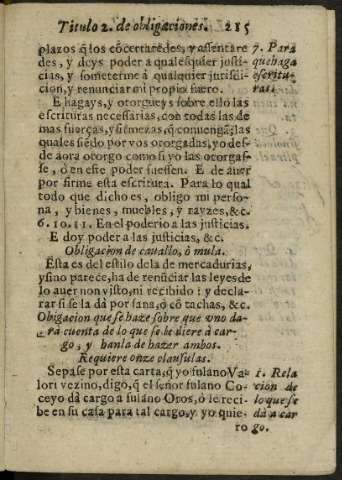 Titulo 2. de obligaciones. 285
plazos q̃ los cõcertaredes, y assentare
des, y deys poder a qualesquier justi-
cias, y someterme à qualquier jurisdi-
cion, y renunciar mi propio fuero.
E hagays, y otorgueys sobre ello las
escrituras necessarias, con todas las de
mas fuerças, y firmezas, q̃ convengã; las
quales siẽdo por vos otorgadas, yo des-
de aora otorgo como si yo las otorgas-
se, ò en este poder fuessen. E de aver
por firme esta escritura. Para lo qual
todo que dicho es, obligo mi perso-
na, y bienes, muebles, y rayzes, &c.
6. 10. 11. En el poderio a las justicias.
E doy poder a las justicias, &c.
Obligacion de cauallo, ò mula.
Esta es del estilo de la de mercadurias,
y si no parece, ha de renũciar las leyes de
lo auer non visto, ni recibido: y decla-
rar si se la dà por sana, ò cõ tachas, &c.
Obigacion que se haze sobre que vno da-
ra cuenta de lo que se le diere à car-
go, y hanla de hazer ambos.
Requiere onze clausulas.
Sepase por esta carta, q̃ yo fulano Va-
lori vezino, digo, q̃ el señor fulano Co-
ceyo dà cargo a fulano Oros, ò le reci-
be en su casa para tal cargo, y yo quie-
ro
7. Para
que haga
escritu-
ras.
1. Rela
cion de
lo que se
dà a car
go.